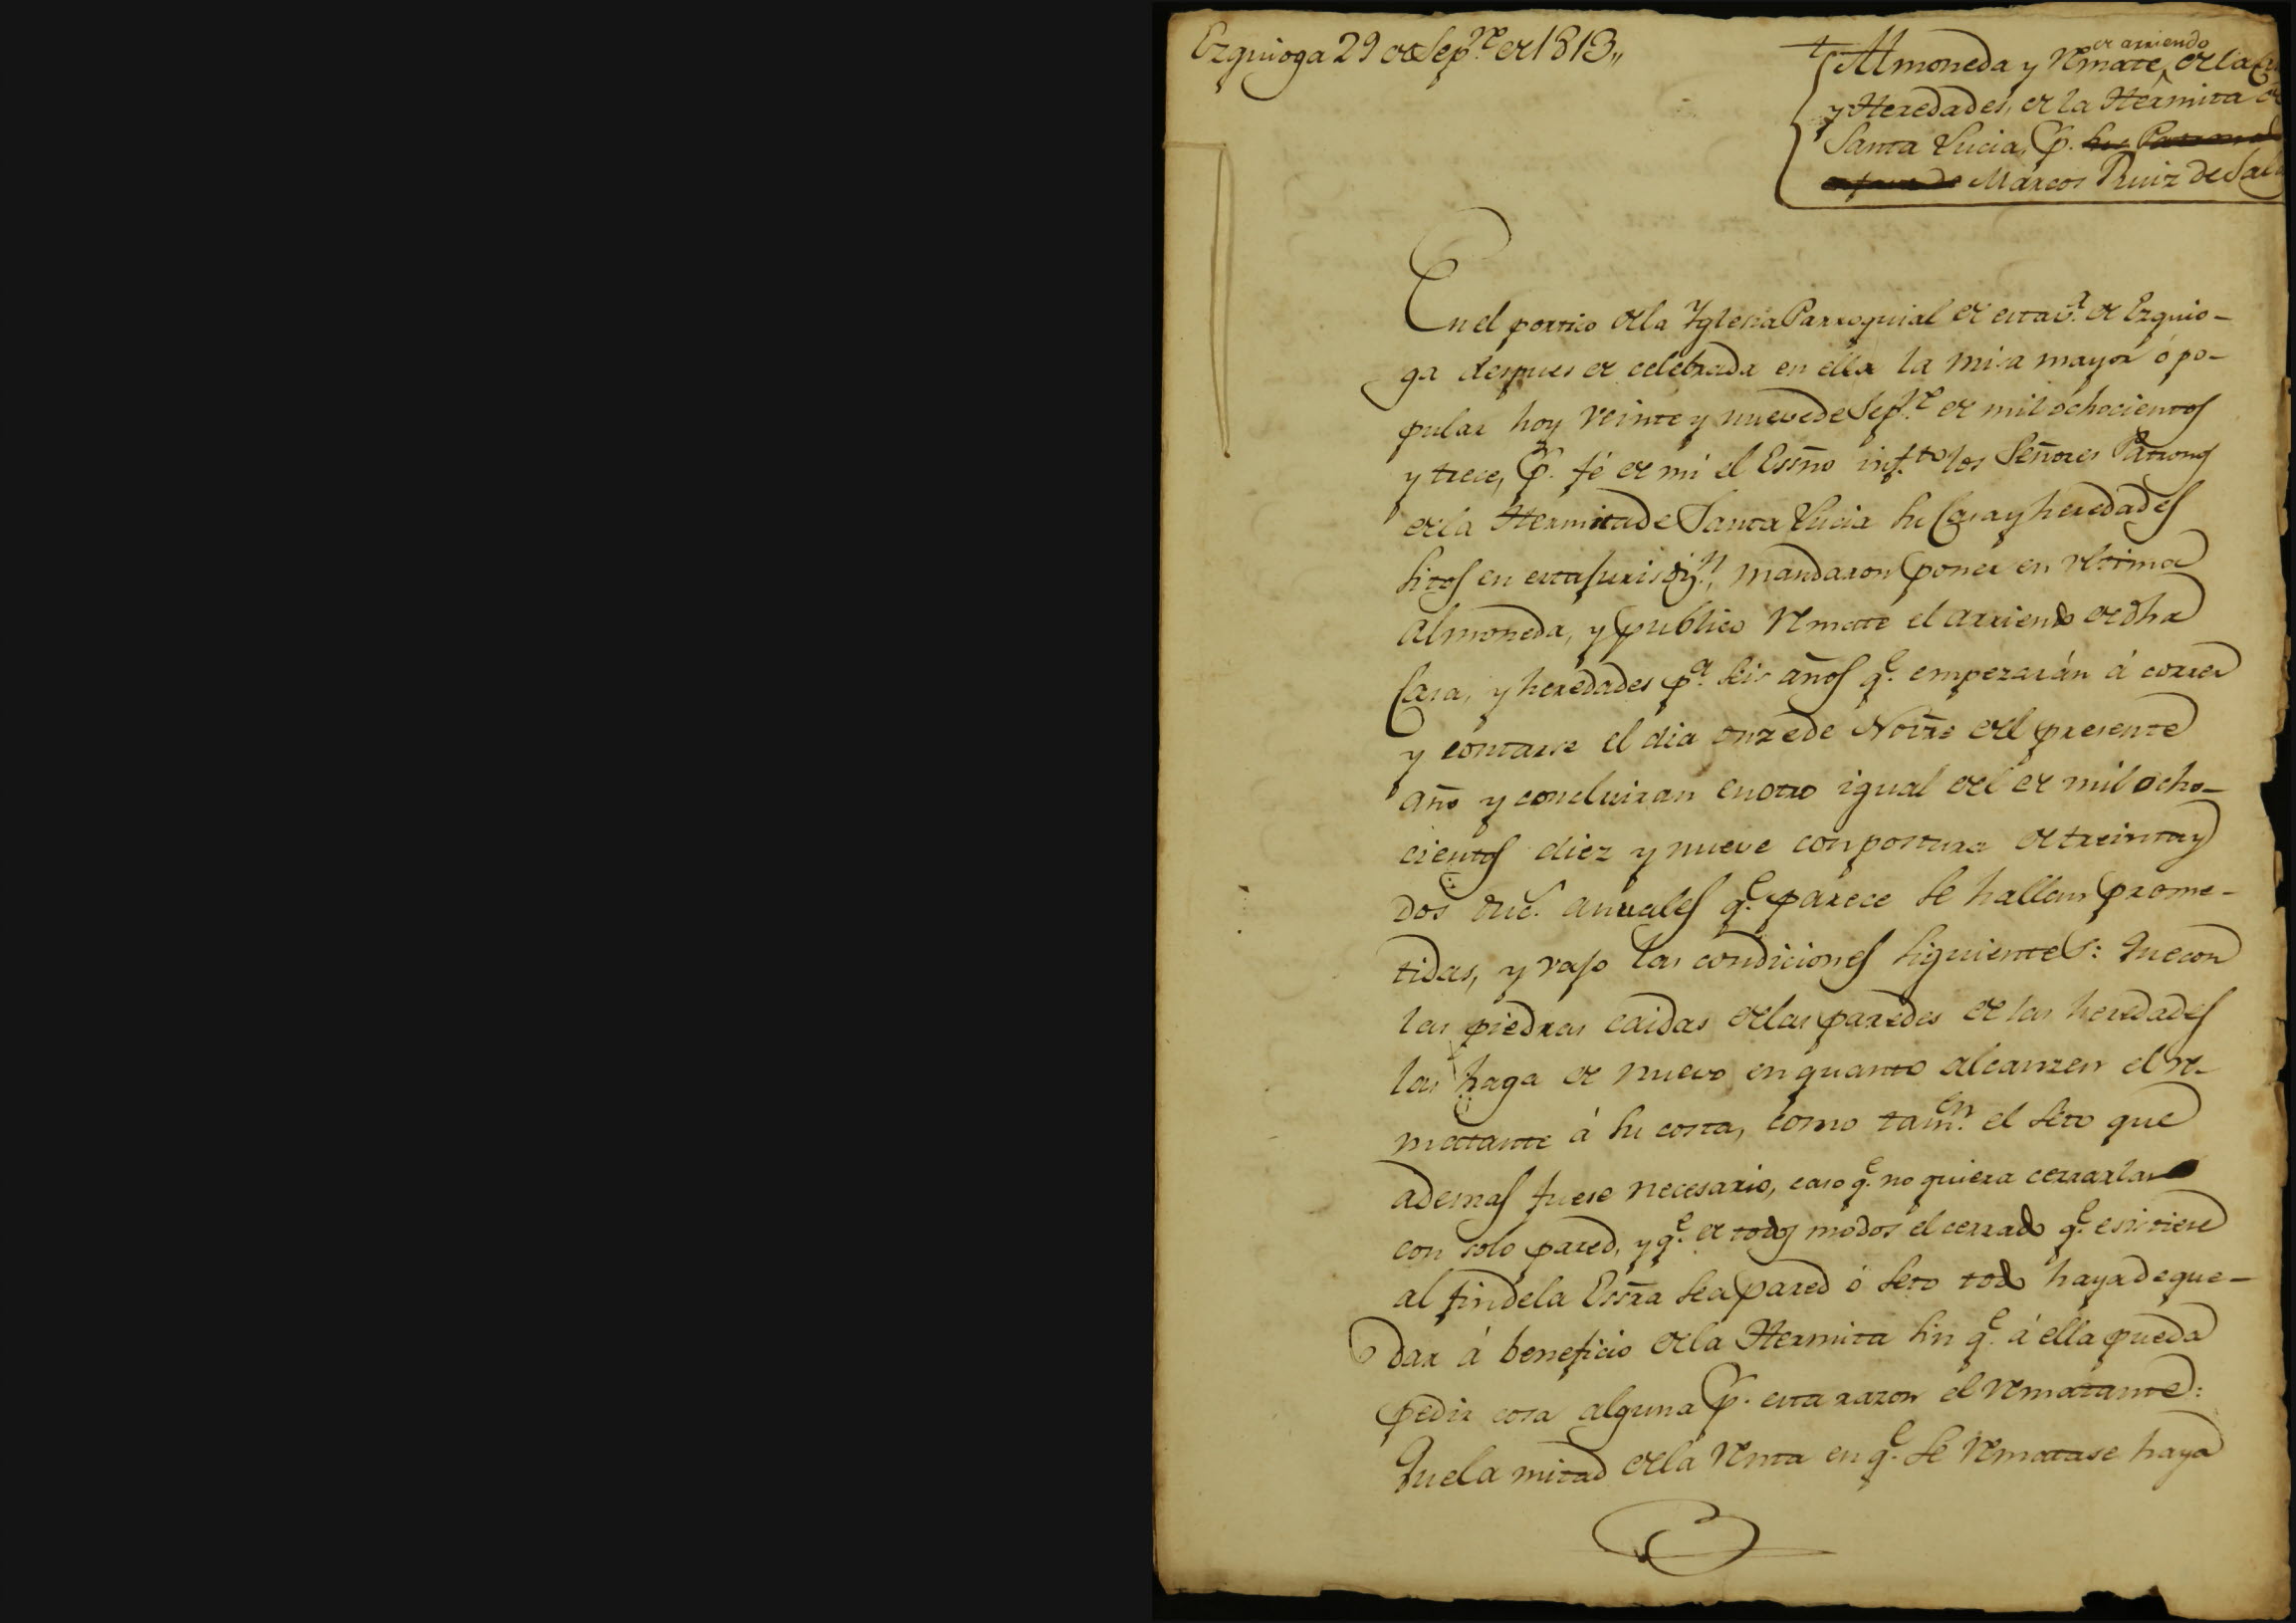 Ezquioga 29 de Sepre de 1813,,
Almoneda y Remate de arriendo de la
y Heredades, de la Hermita de
Santa Lucia, p.
Marcos Ruiz de
En el portico de la Yglesia Parroquial de esta va. de Ezquio-
ga despues de celebrada en ella la misa mayor ó po-
pular hoy veinte y nueve de Sepre. de mil ochocientos
y trece, p. fé de mi el Essño inf.to los Señores Patronos
de la Hermita de Santa Lucia su Casa y heredades
sitos en esta jurisdn., mandaron poner en ultima
Almoneda, y publico Remate el arriendo de dha
Casa, y heredades pa. seis años qe. empezarán á correr
y contarse el dia onze de Novre del presente
año y concluiran en otro igual del de mil ocho-
cientos diez y nueve con postura de treinta y
dos duc. anuales qe. parece se hallan prome-
tidas, y vajo las condiciones siguientes: Que con
las piedras caidas de las paredes de las heredades
las haga de nuevo en quanto alcanzen el re-
matante á su costa, como tamen. el seto que
ademas fuese necesario, caso qe. no quiera cerrarlas
con solo pared, y qe. de todos modos el cerrado qe. esistiere
al fin de la Essra sea pared ó seto todo haya de que-
dar á beneficio de la Hermita sin qe. á ella pueda
pedir cosa alguna p. esta razon el Rematante:
Que la mitad de la Renta en qe. se Rematase haya